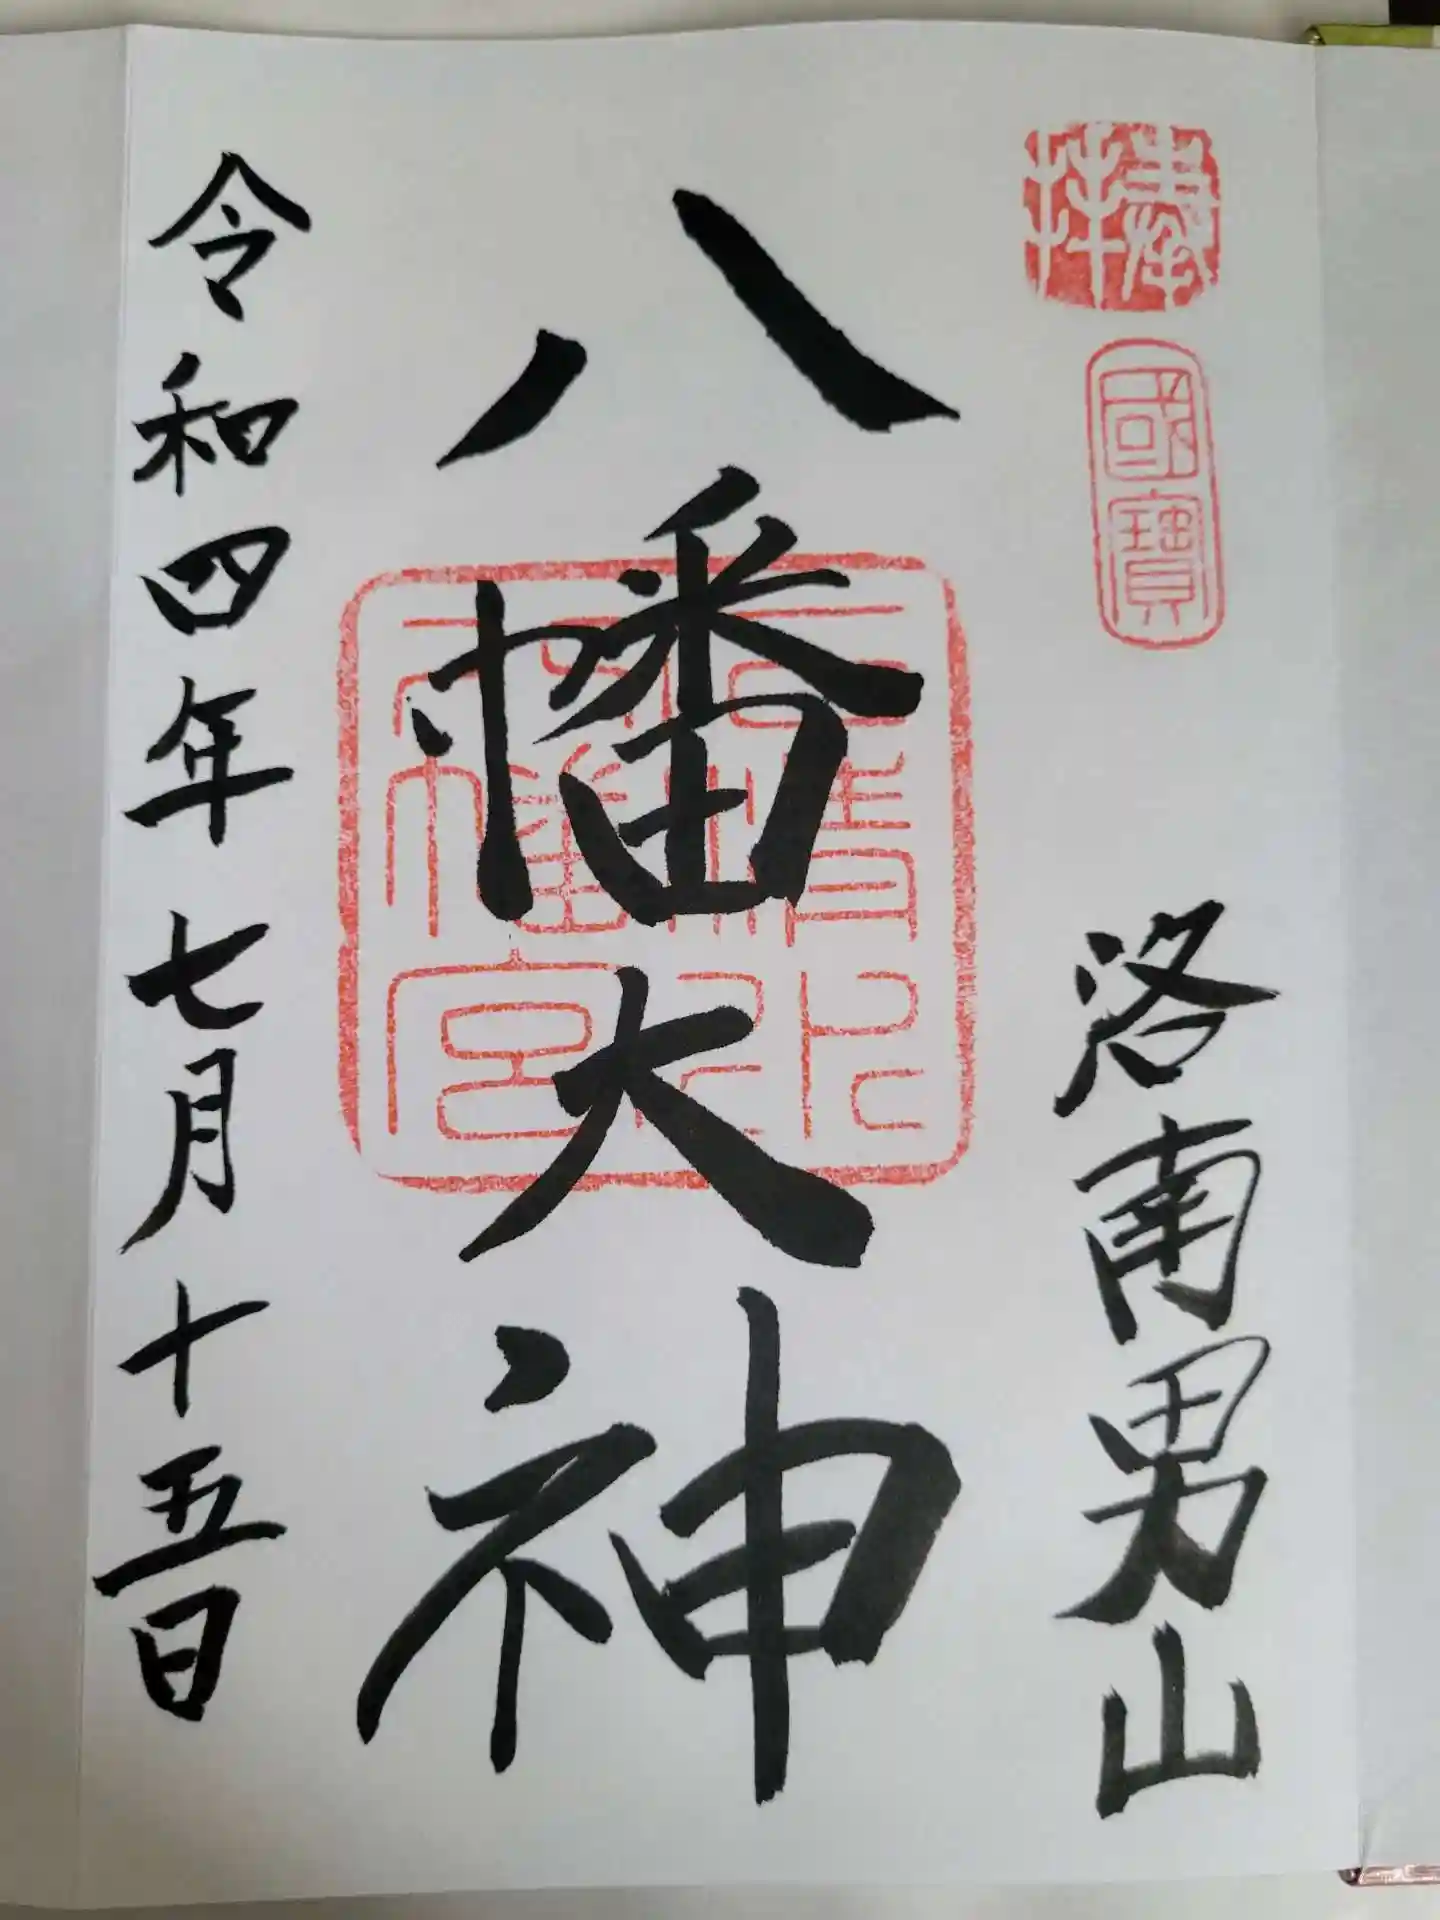 奉拝
國寶
洛南男山
八幡大神
石清水
八幡宮
令和四年七月十五日